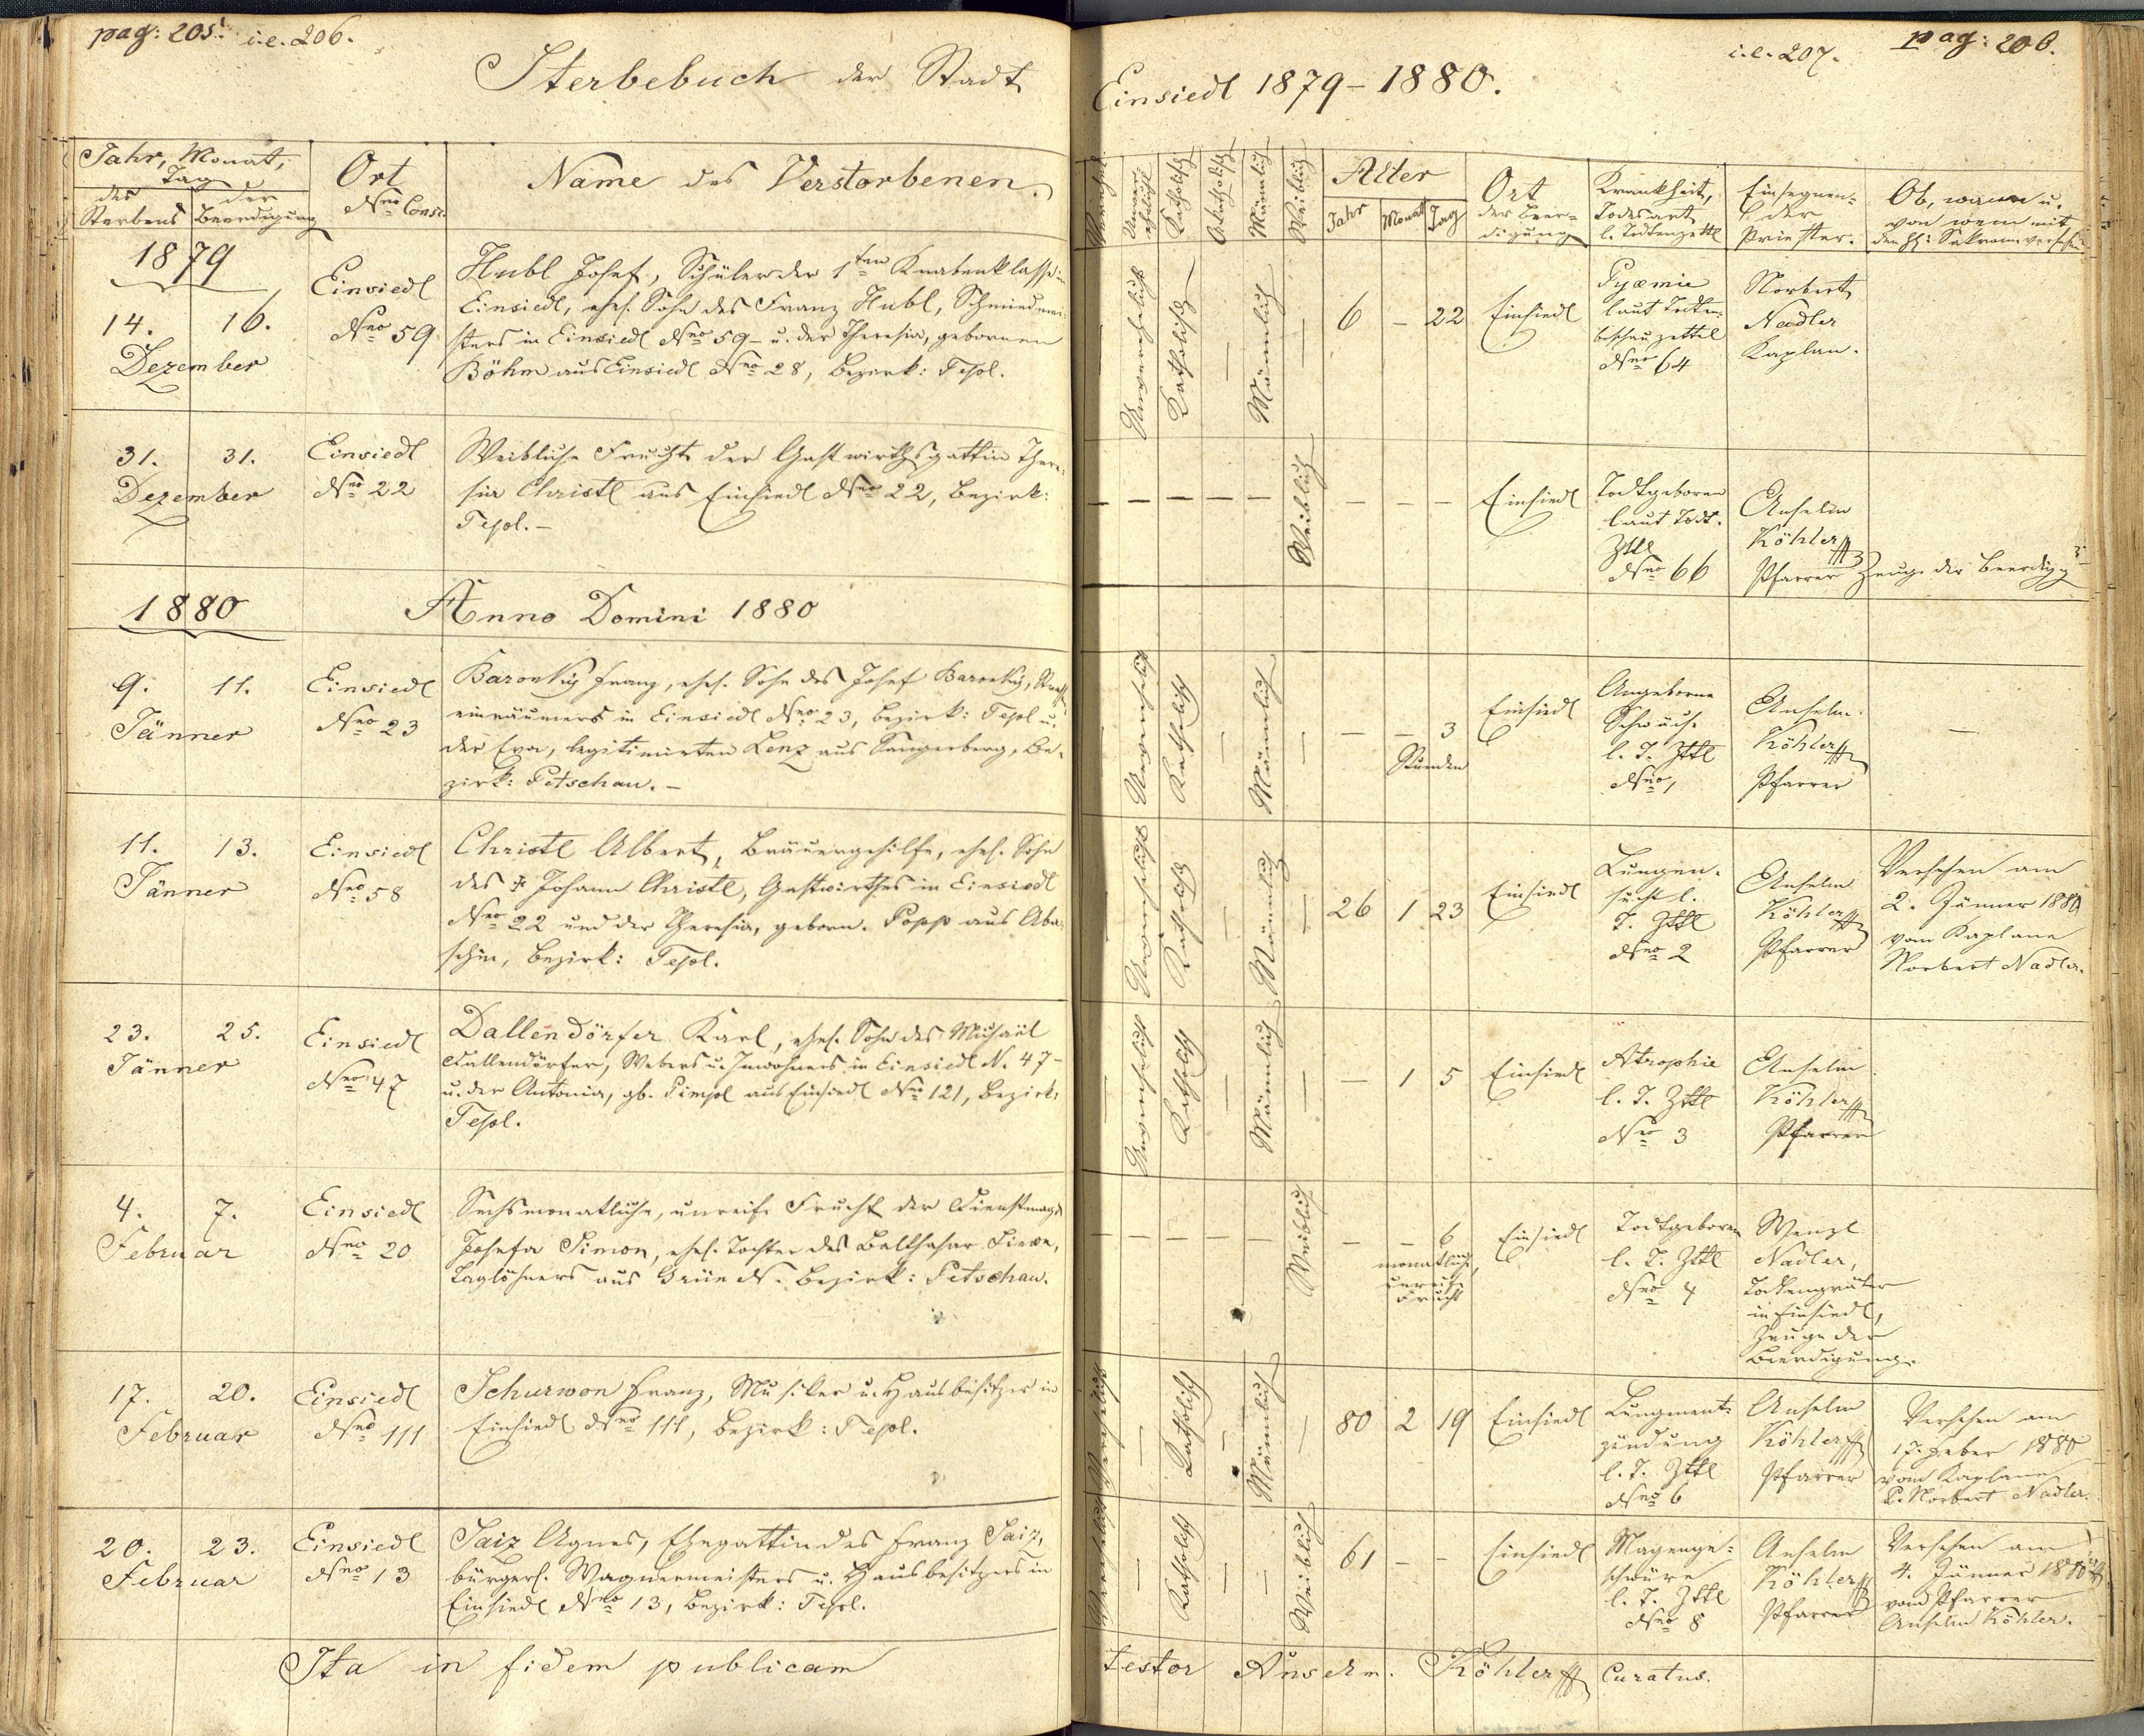 pag: 205. i.e. 206.
Sterbebuch der Stadt
Jahr, Monat,
Tag
des Sterbens
der Beerdigung
Ort
Nro Consc.
Name des Verstorbenen.
1879
14. 16.
Dezember
Einsiedl
Nro 59
Hubl Josef, Schüler der 1ten Knabenklasse in
Einsiedl, ehel. Sohn des Franz Hubl, Schmiedmei-
sters in Einsiedl Nro 59 - u. der Theresia, gebornen
Böhm aus Einsiedl Nro 28, Bezirk: Tepl.
31. 31.
Dezember
Einsiedl
Nro 22
Weibliche Frucht der Gastwirthsgattin There-
sia Christl aus Einsiedl Nro 22, Bezirk:
Tepl. -
1880
Anno Domini 1880
9. 11.
Jänner
Einsiedl
Nro 23
Baronky Franz, ehel. Sohn des Josef Baronky,
einräumers in Einsiedl Nro 23, Bezirk: Tepl u.
der Eva, legitimirten Lenz aus Sangerberg, Be-
zirk: Petschau. -
11. 13.
Jänner
Einsiedl
Nro 58
Christl Albert, Bräuergehilfe, ehel. Sohn
des Johann Christl, Gastwirthes in Einsiedl
Nro 22 und der Theresia, geborn. Popp aus Aba-
schin, Bezirk: Tepl.
23. 25.
Jänner
Einsiedl
Nro 47
Dallendörfer Karl, ehel. Sohn des Michael
Dallendörfer, Webers u. Inwohners in Einsiedl N. 47 -
u. der Antonia, gb. Pimpl aus Einsiedl Nro 121, Bezirk:
Tepl.
4. 7.
Februar
Einsiedl
Nro 20
Sechsmonatliche, unreife Frucht der Dienstmagd
Josefa Simon, ehel. Tochter des Balthasar Simon,
Taglöhners aus Grün N. Bezirk: Petschau.
17. 20.
Februar
Einsiedl
Nro 111
Schurwon Franz, Musiker u. Hausbesitzer in
Einsiedl Nro 111, Bezirk: Tepl.
20. 23.
Februar
Einsiedl
Nro 13
Saiz Agnes, Ehegattin des Franz Saiz,
bürgerl. Wagnermeisters u. Hausbesitzers in
Einsiedl Nro 13, Bezirk: Tepl.
Ita in fidem publicam
i.e. 207. pag: 206.
Einsiedl 1879-1880.
Katholisch
Männlich
Weiblich
Alter
Jahr Monat Tag
Ort
der Beer-
digung
Krankheit,
Todesart
l. Todtenzettl
Einsegnen-
der
Priester.
Ob, wann u.
von wem mit
den hl: Sakram. versehen
Unverehelicht
Katholisch
-
Männlich
-
6 - 22
Einsiedl
Pyæmie
laut Todten-
beschauzettel
Nro 64
Norbert
Nadler
Kaplan.
- - - - - Weiblich
- - -
Einsiedl
Todtgeboren
laut Todt.
Zttl
Nro 66
Anselm
Köhler
Pfarrer Zeuge der Beerdigg
Unverehelicht
Katholisch
-
Männlich
-
- - 3
Stunden
Einsiedl
Angeborne
Schwäche
l. T. Zttl
Nro 1
Anselm
Köhler
Pfarrer
-
Unverehelicht
Katholisch
-
Männlich
-
26 1 23
Einsiedl
Lungen-
sucht l.
T. Zttl
Nro 2
Anselm
Köhler
Pfarrer
Versehen am
2. Jänner 1880
vom Kaplane
Norbert Nadler.
Unverehelicht
Katholisch
-
Männlich
-
- 1 5
Einsiedl
Atrophie
l. T. Zttl
Nro 3
Anselm
Köhler
Pfarrer
- - - - - Weiblich
- - 6
monatliche,
unreife
Frucht
Einsiedl
Todtgeboren
l. T. Zttl
Nro 4
Wenzl
Nadler,
Todtengräber
in Einsiedl,
Zeuge der
Beerdigung.
Verehelicht
-
Katholisch
-
Männlich
-
80 2 19
Einsiedl
Lungenent-
zündung
l. T. Zttl
Nro 6
Anselm
Köhler
Pfarrer
Versehen am
17. Feber 1880
vom Kaplane
P. Norbert Nadler.
Verehelicht
-
Katholisch
-
-
Weiblich
61 - -
Einsiedl
Magenge-
schwüre
l. T. Zttl
Nro 8
Anselm
Köhler
Pfarrer
Versehen am
4. Jänner 1880
vom Pfarrer
Anselm Köhler.
testor Anselm. Köhler Curatus.